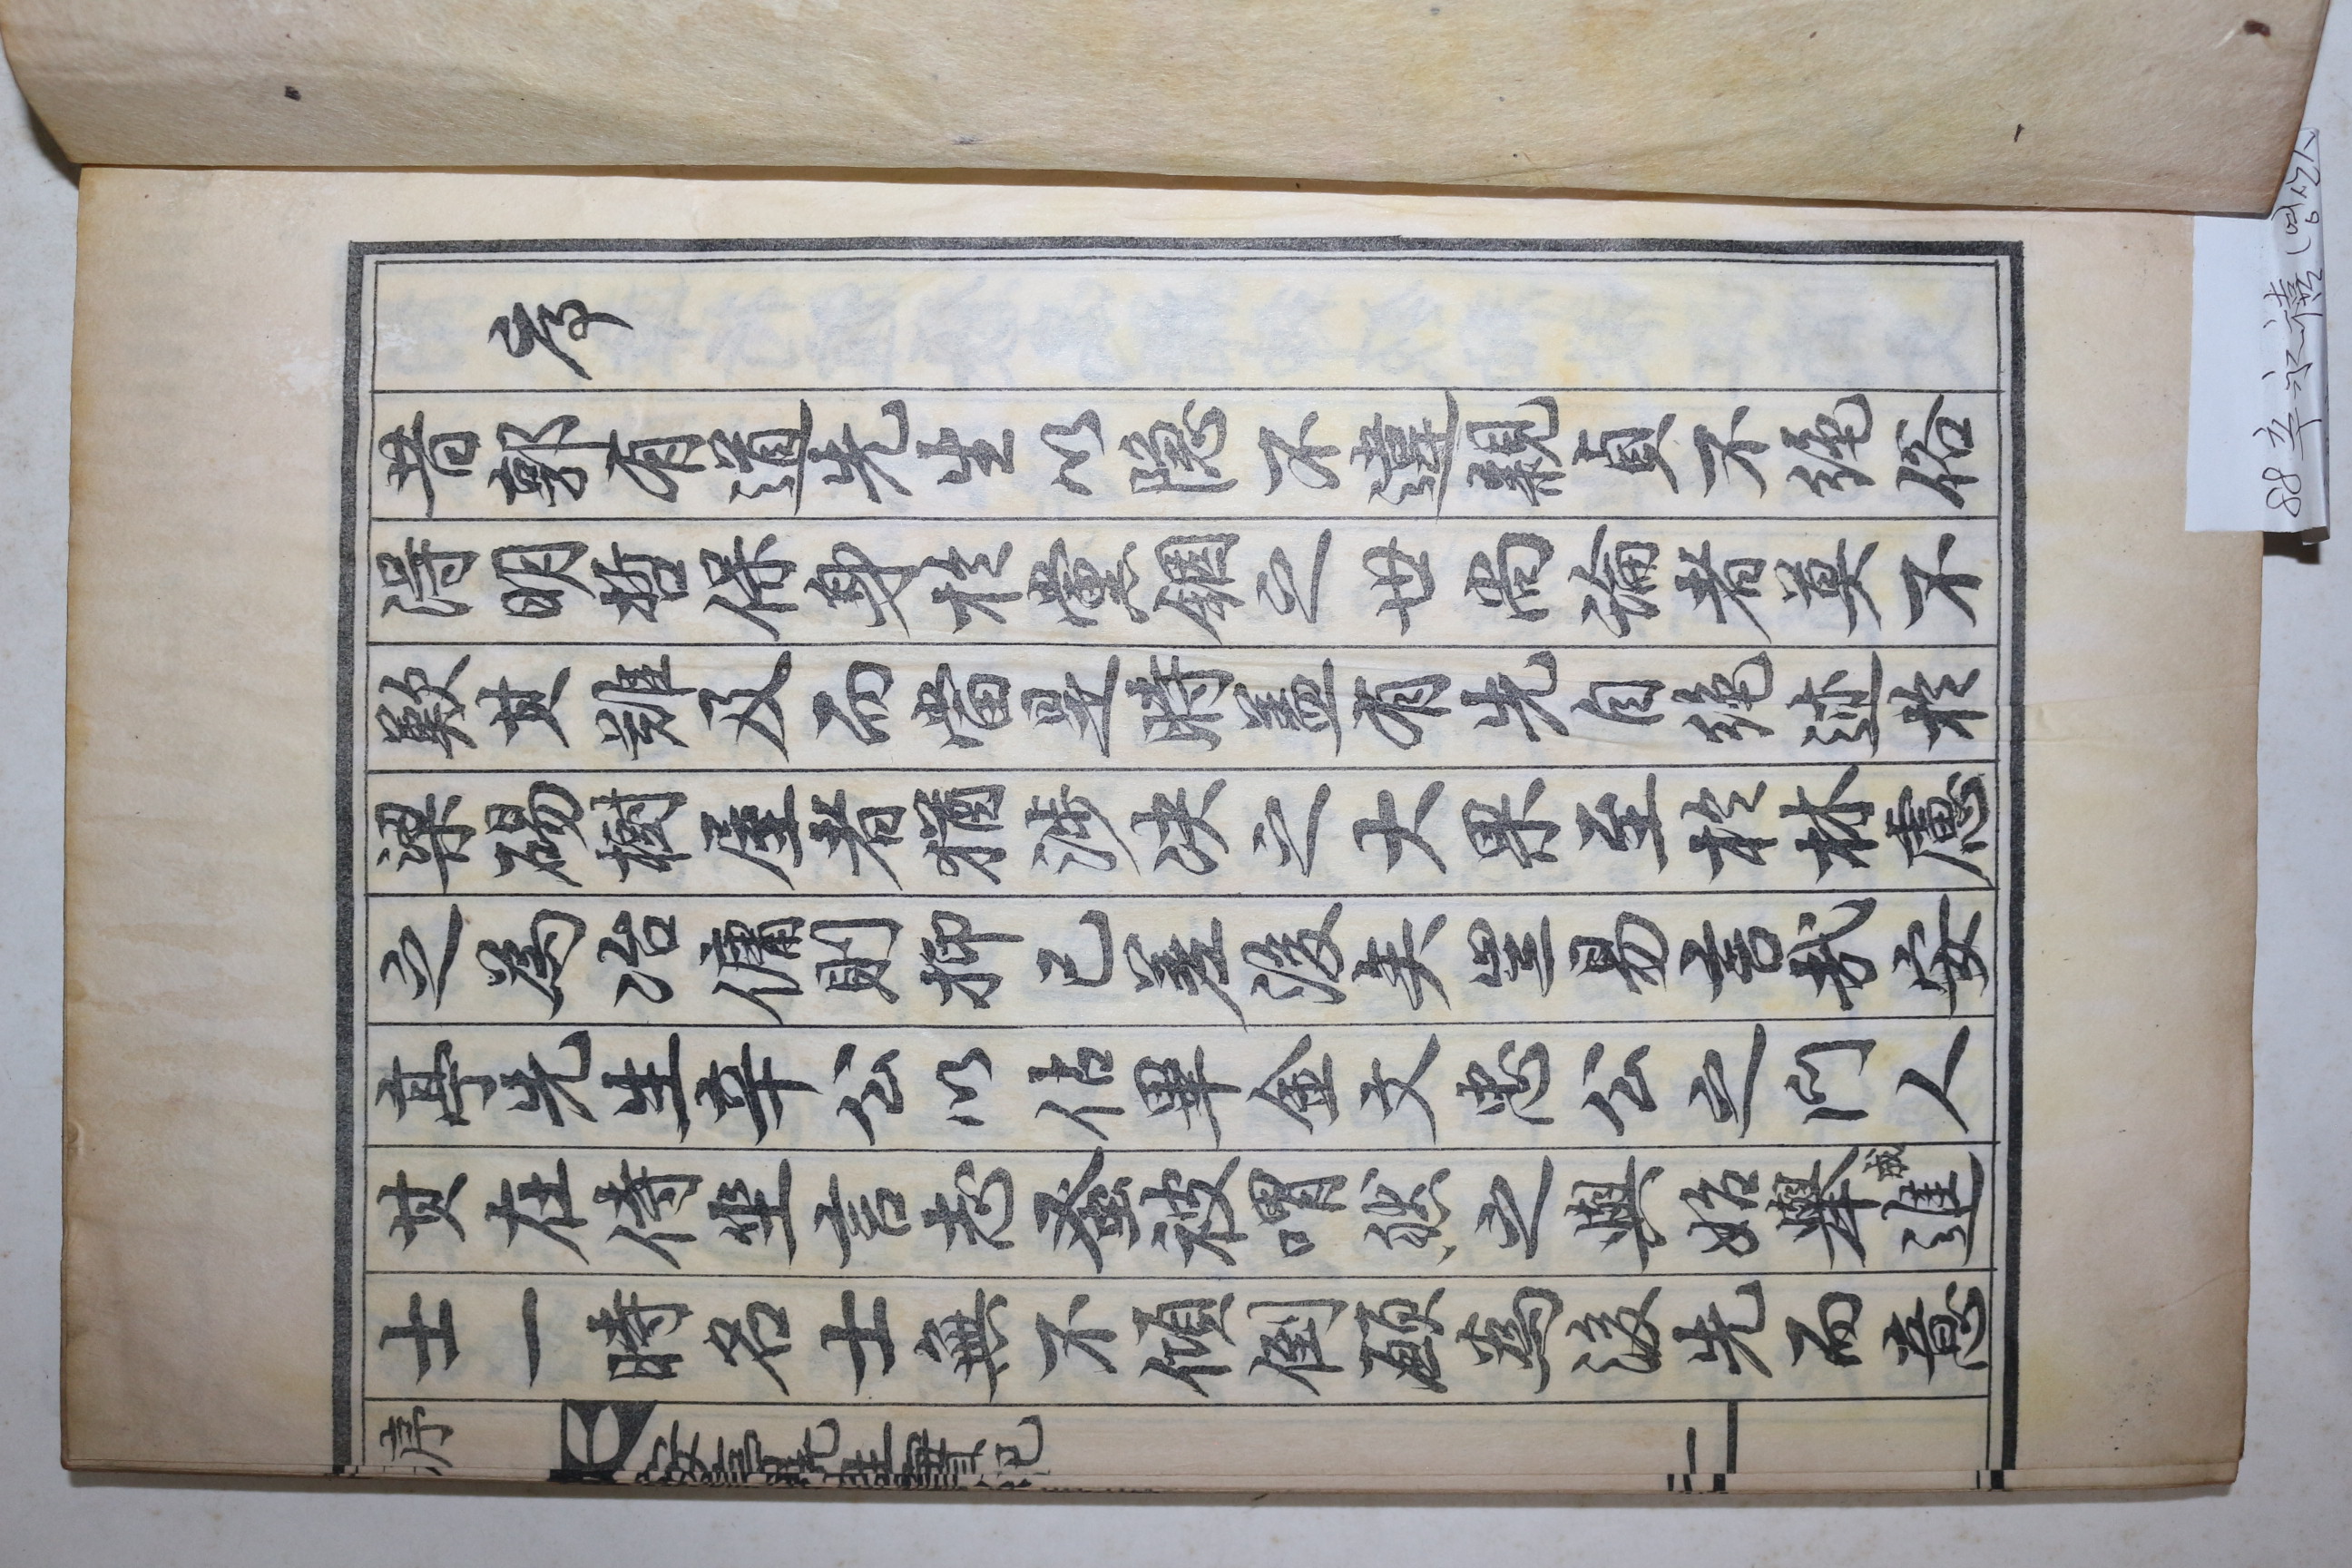 序
昔郭有道先生以隐不違親貞不絶俗
淂明哲保身於黨錮之世尚論者莫不
歎其難及而當是時盖有先自絶迹於
梁碭樹屋者猶涉决之大果至於林慮
之為冶傭則抑已差後矣豈易言哉安
亭先生辛公以佔畢金文忠公之門人
其在侍坐言志蚤被喟然之與始舉成進
士一時名士無不傾倒願為後先而意
序
安亭先生實記
一
88 辛永禧(영산人